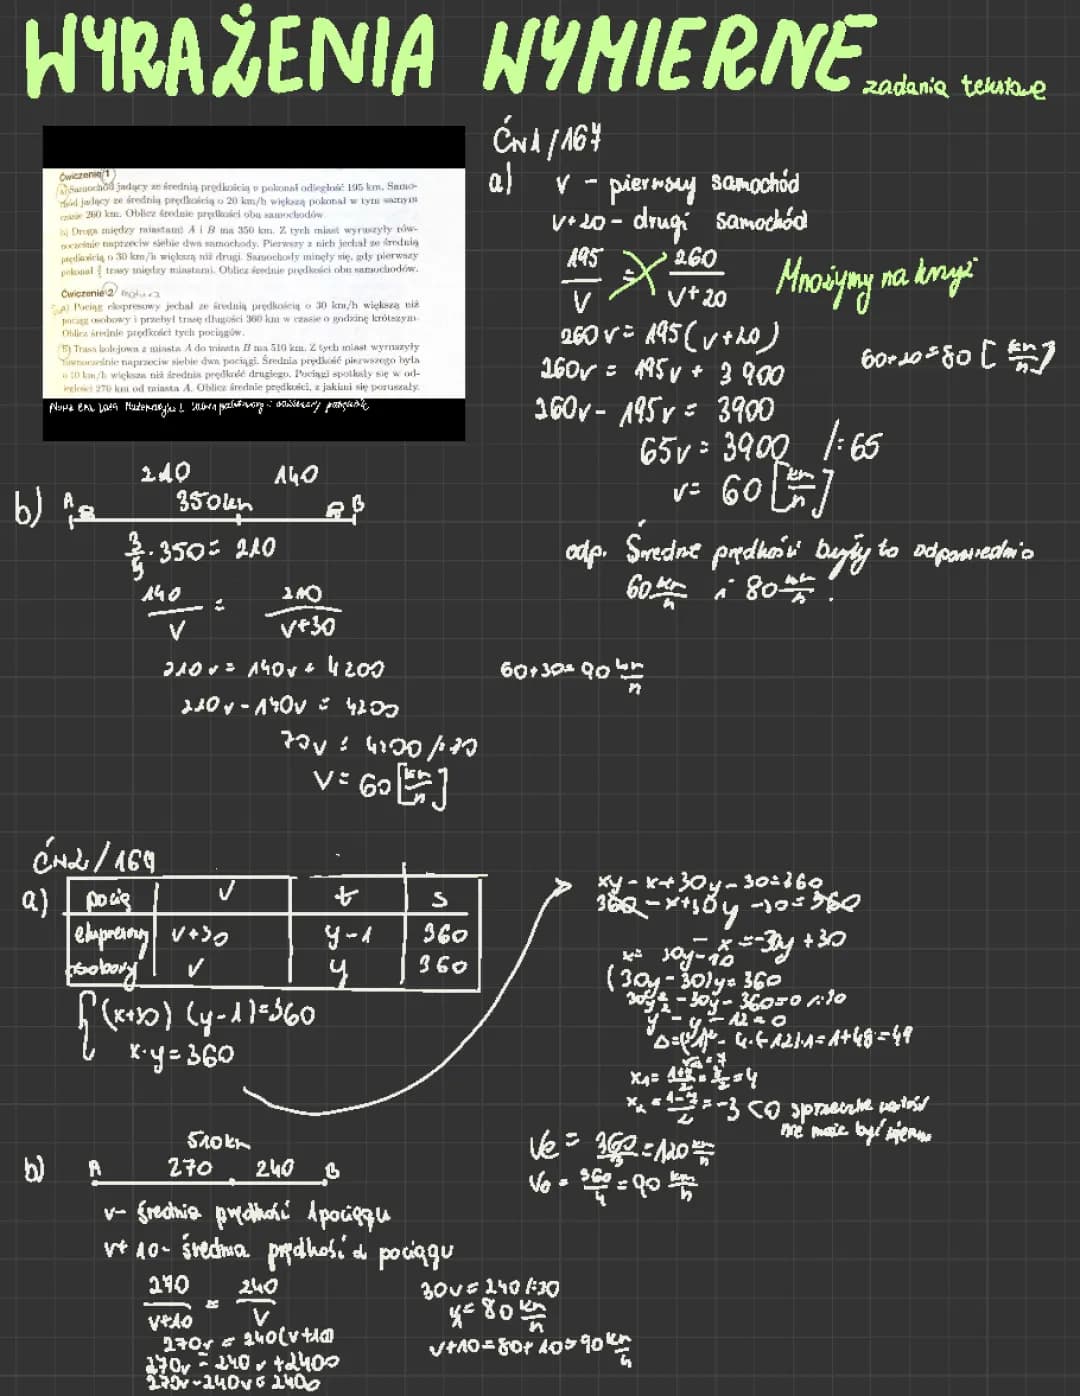 WYRAŻENIA WYMIERNE zadania tekstowe
Ćwiczenie 1
a) Samochód jadący ze średnią prędkością v pokonał odległość 195 km. Samo-
chód jadący ze średnią prędkością o 20 km/h większą pokonał w tym samym
czasie 260 km. Oblicz średnie prędkości obu samochodów.
b) Droga między miastami A i B ma 350 km. Z tych miast wyruszyły rów-
nocześnie naprzeciw siebie dwa samochody. Pierwszy z nich jechał ze średnią
prędkością o 30 km/h większą niż drugi. Samochody minęły się, gdy pierwszy
pokonał 3/5 trasy między miastami. Oblicz średnie prędkości obu samochodów.
Ćwiczenie 2
a) Pociąg ekspresowy jechał ze średnią prędkością o 30 km/h większą niż
pociąg osobowy i przebył trasę długości 360 km w czasie o godzinę krótszym.
Oblicz średnie prędkości tych pociągów.
b) Trasa kolejowa z miasta A do miasta B ma 510 km. Z tych miast wyruszyły
równocześnie naprzeciw siebie dwa pociągi. Średnia prędkość pierwszego była
o 10 km/h większa niż średnia prędkość drugiego. Pociągi spotkały się w od-
ległości 270 km od miasta A. Oblicz średnie prędkości, z jakimi się poruszały.
Ćw1/167
a) v - pierwszy samochód
v+20 - drugi samochód
195/v = 260/v+20 Mnożymy na krzyż
260v = 195(v+20)
260v = 195v + 3900
260v - 195v = 3900
65v = 3900 /:65
v = 60 [km/h]
60+20=80 [km/h]
odp. Średnie prędkości były to odpowiednio
60 km/h i 80 km/h.
b) A 210 140 B
350km
3/5 · 350 = 210
140/v = 210/v+30
210v = 140v + 4200
210v - 140v = 4200
70v = 4200 /:70
v = 60 [km/h]
60+30=90 km/h
Ćw2/169
a) pociąg v t s
ekspresowy v+30 y-1 360
osobowy v y 360
(x+30)(y-1)=360
x·y=360
xy-x+30y-30=360
360-x+30y-30=360
-x=-30y+30
x=30y-30
(30y-30)y=360
30y²-30y-360=0 /:30
y²-y-12=0
Δ=(-1)²-4·(-12)·1=1+48=49
√Δ=7
x₁=1+7/2=8/2=4
x₂=1-7/2=-3 <0 sprzeczne wartość
nie może być ujemna
Ve = 360/3 = 120 km/h
Vo = 360/4 = 90 km/h
b) 510km
A 270 240 B
v- średnia prędkość 1 pociągu
v+10- średnia prędkość 2 pociągu
270/v+10 = 240/v
270v = 240(v+10)
270v = 240v+2400
270v-240v=2400
30v=240 /:30
v=80 km/h
v+10=80+10=90 km/h